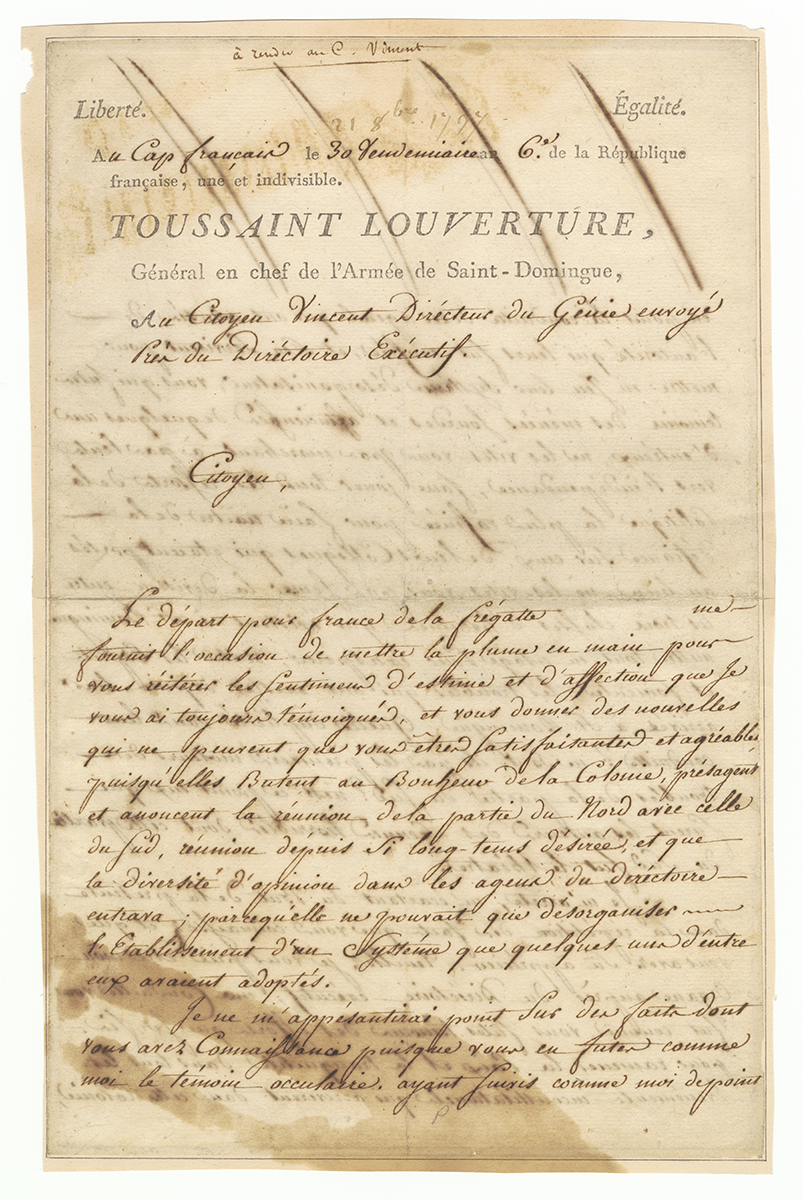 à rendre au C. Vincent
Liberté. Égalité.
21 8bre 1797
Au Cap français le 30 Vendemiaire an 6.e de la République
française, une et indivisible.
TOUSSAINT LOUVERTURE,
Général en chef de l'Armée de Saint-Domingue,
Au Citoyen Vincent Dirécteur du Génie envoyé
Près du Diréctoire Exécutif.
Citoyen,
Le départ pour france de la frégatte me
fournit l'occasion de mettre la plume en main pour
vous réitérer les sentimens d'estime et d'affection que Je
vous ai toujours témoignés, et vous donner des nouvelles
qui ne peuvent que vous être satisfaisantes et agréables
puisqu'elles Butent au Bonheur de la Colonie, présagent
et anoncent la réunion de la partie du Nord avec celle
du Sud, réunion depuis si long-tems désirée, et que
la diversité d'opinion dans les agens du diréctoire
entrava ; parcequ'elle ne pouvait que désorganiser
l'Etablissement d'un Systéme que quelques uns d'entre
eux avaient adoptés.
Je ne m'appésantirai point sur des faits dont
vous avez Connaissance puisque vous en futes comme
moi le témoin occulaire. ayant suivis comme moi de point